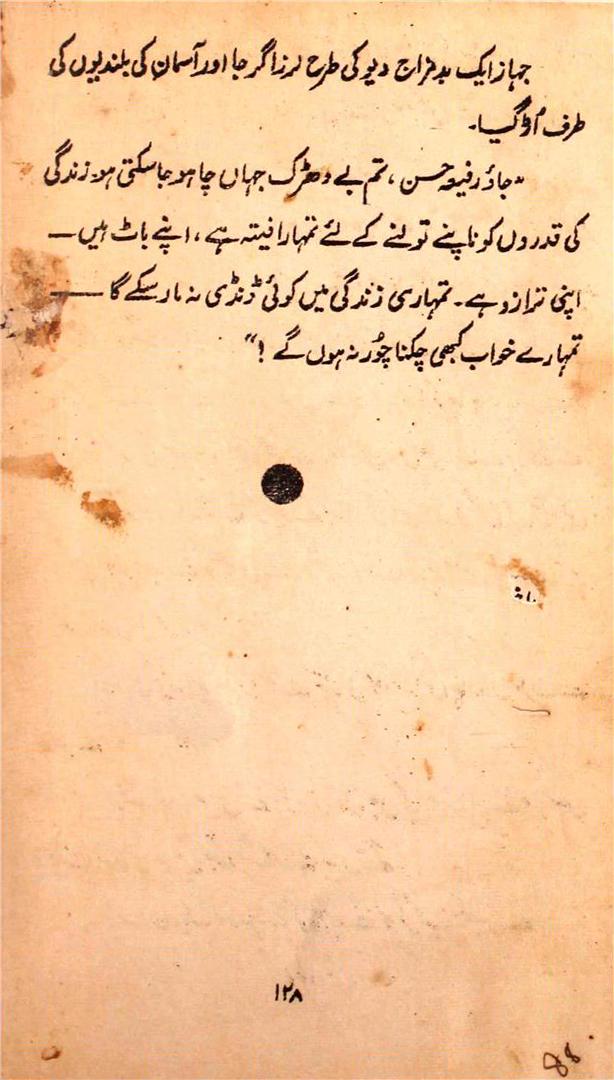 جہاز ایک بدمزاج دیو کی طرح لرزا گرجا اور آسمان کی بلندیوں کی
طرف اُڑ گیا۔
"جاؤ رفیعہ حسن ، تم بے دھڑک جہاں چاہو جا سکتی ہو۔ زندگی
کی قدروں کو ناپنے تولنے کے لئے تمہارا فیتہ ہے ، اپنے باٹ ہیں —
اپنی ترازو ہے۔ تمہاری زندگی میں کوئی ڈنڈی نہ مار سکے گا —
تمہارے خواب کبھی چکنا چُور نہ ہوں گے !"
۱۲۸
88